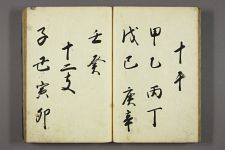 十干
甲乙丙丁
戊己庚辛
壬癸
十二支
子丑寅卯